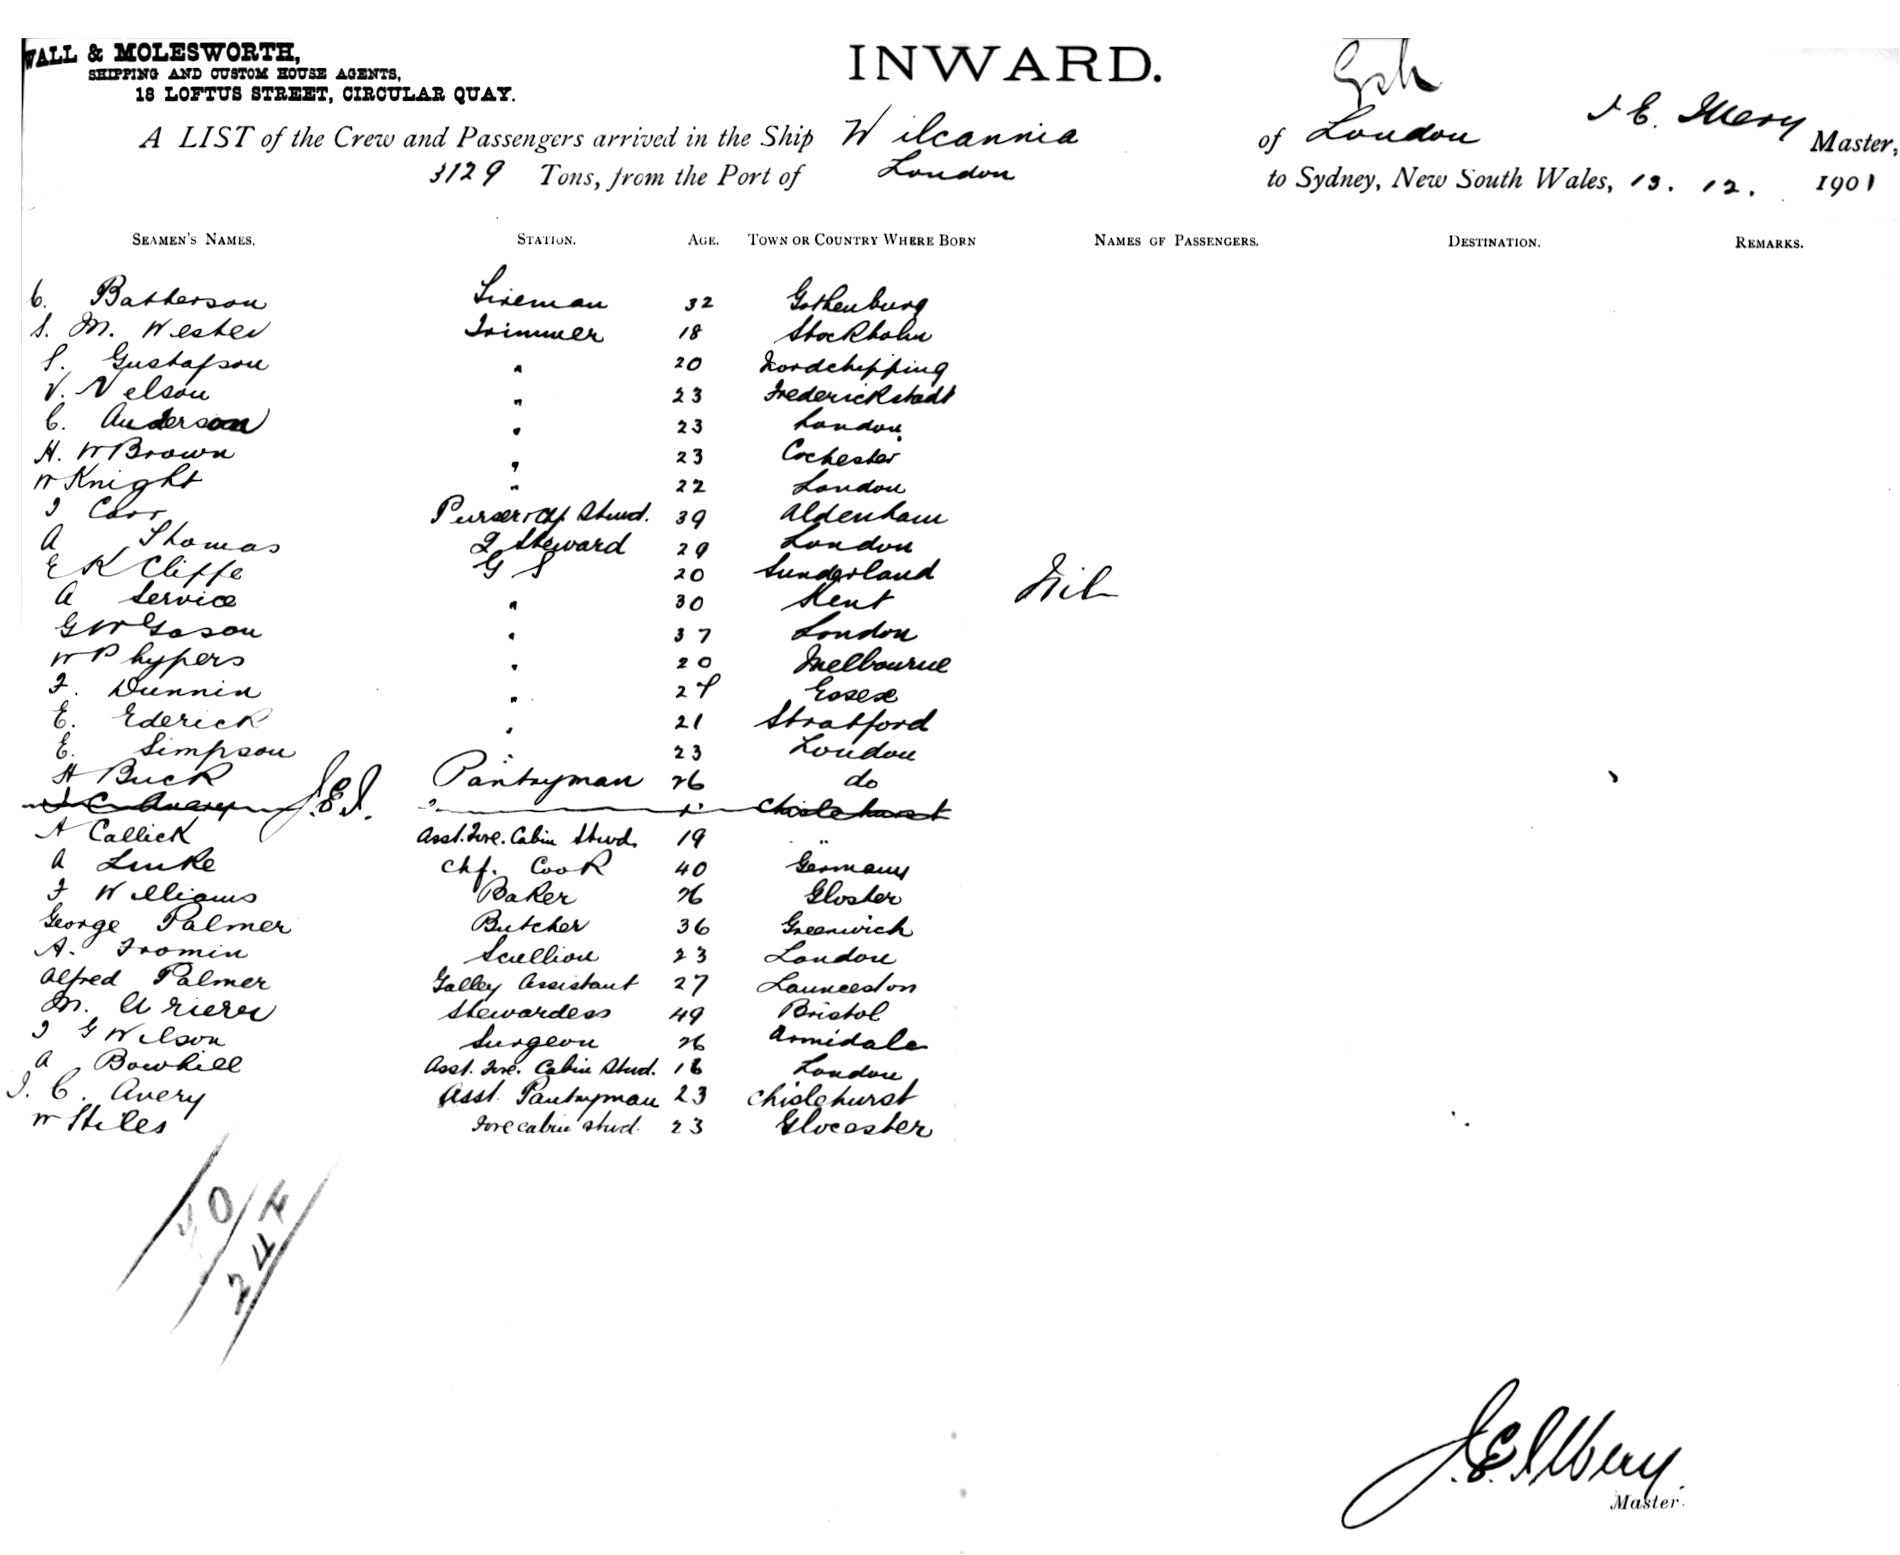 WALL & MOLESWORTH,
SHIPPING AND CUSTOM HOUSE AGENTS,
18 LOFTUS STREET, CIRCULAR QUAY.
INWARD.
A LIST of the Crew and Passengers arrived in the Ship Wilcannia of London J E. Master,
3129 Tons, from the Port of London to Sydney, New South Wales, 13. 12. 1901
SEAMEN'S NAMES. STATION. AGE. TOWN OR COUNTRY WHERE BORN NAMES OF PASSENGERS. DESTINATION. REMARKS.
C. Batherson Fireman 32 Gothenburg
S. M. Wester Trimmer 18 Stockholm
S. Gustafson " 20 Nordchipping
V. Nelson " 23 Frederickstadt
C. Anderson " 23 London
H. W Brown " 23 Cochester
W Knight " 22 London
J Carr Purser & Chf Stwd. 39 Aldenham
A Thomas 2 Steward 29 London
E K Cliffe G S 20 Sunderland
A Service " 30 Kent Nil
G W Gason " 37 London
W Phypers " 20 Melbourne
F. Dunnin " Essex
E. Ederick " 21 Stratford
E. Simpson " 23 London
H Buck Pantryman 26 do
J C Avery " " Chislehurst
A Callick Asst. Fore. Cabin Stwd. 19 "
A Linke Chf. Cook 40 Germany
F Williams Baker 26 Gloster
George Palmer Butcher 36 Greenwich
A. Fromin Scullion 23 London
Alfred Palmer Galley Assistant 27 Launceston
M. Stewardess 49 Bristol
J G Wilson Surgeon 26 Armidale
A Bowhill Asst. Fore. Cabin Stwd. 18 London
J. C. Avery Asst. Pantryman 23 Chislehurst
W Stiles Fore cabin stwd. 23 Glocester
J. E.
Master.